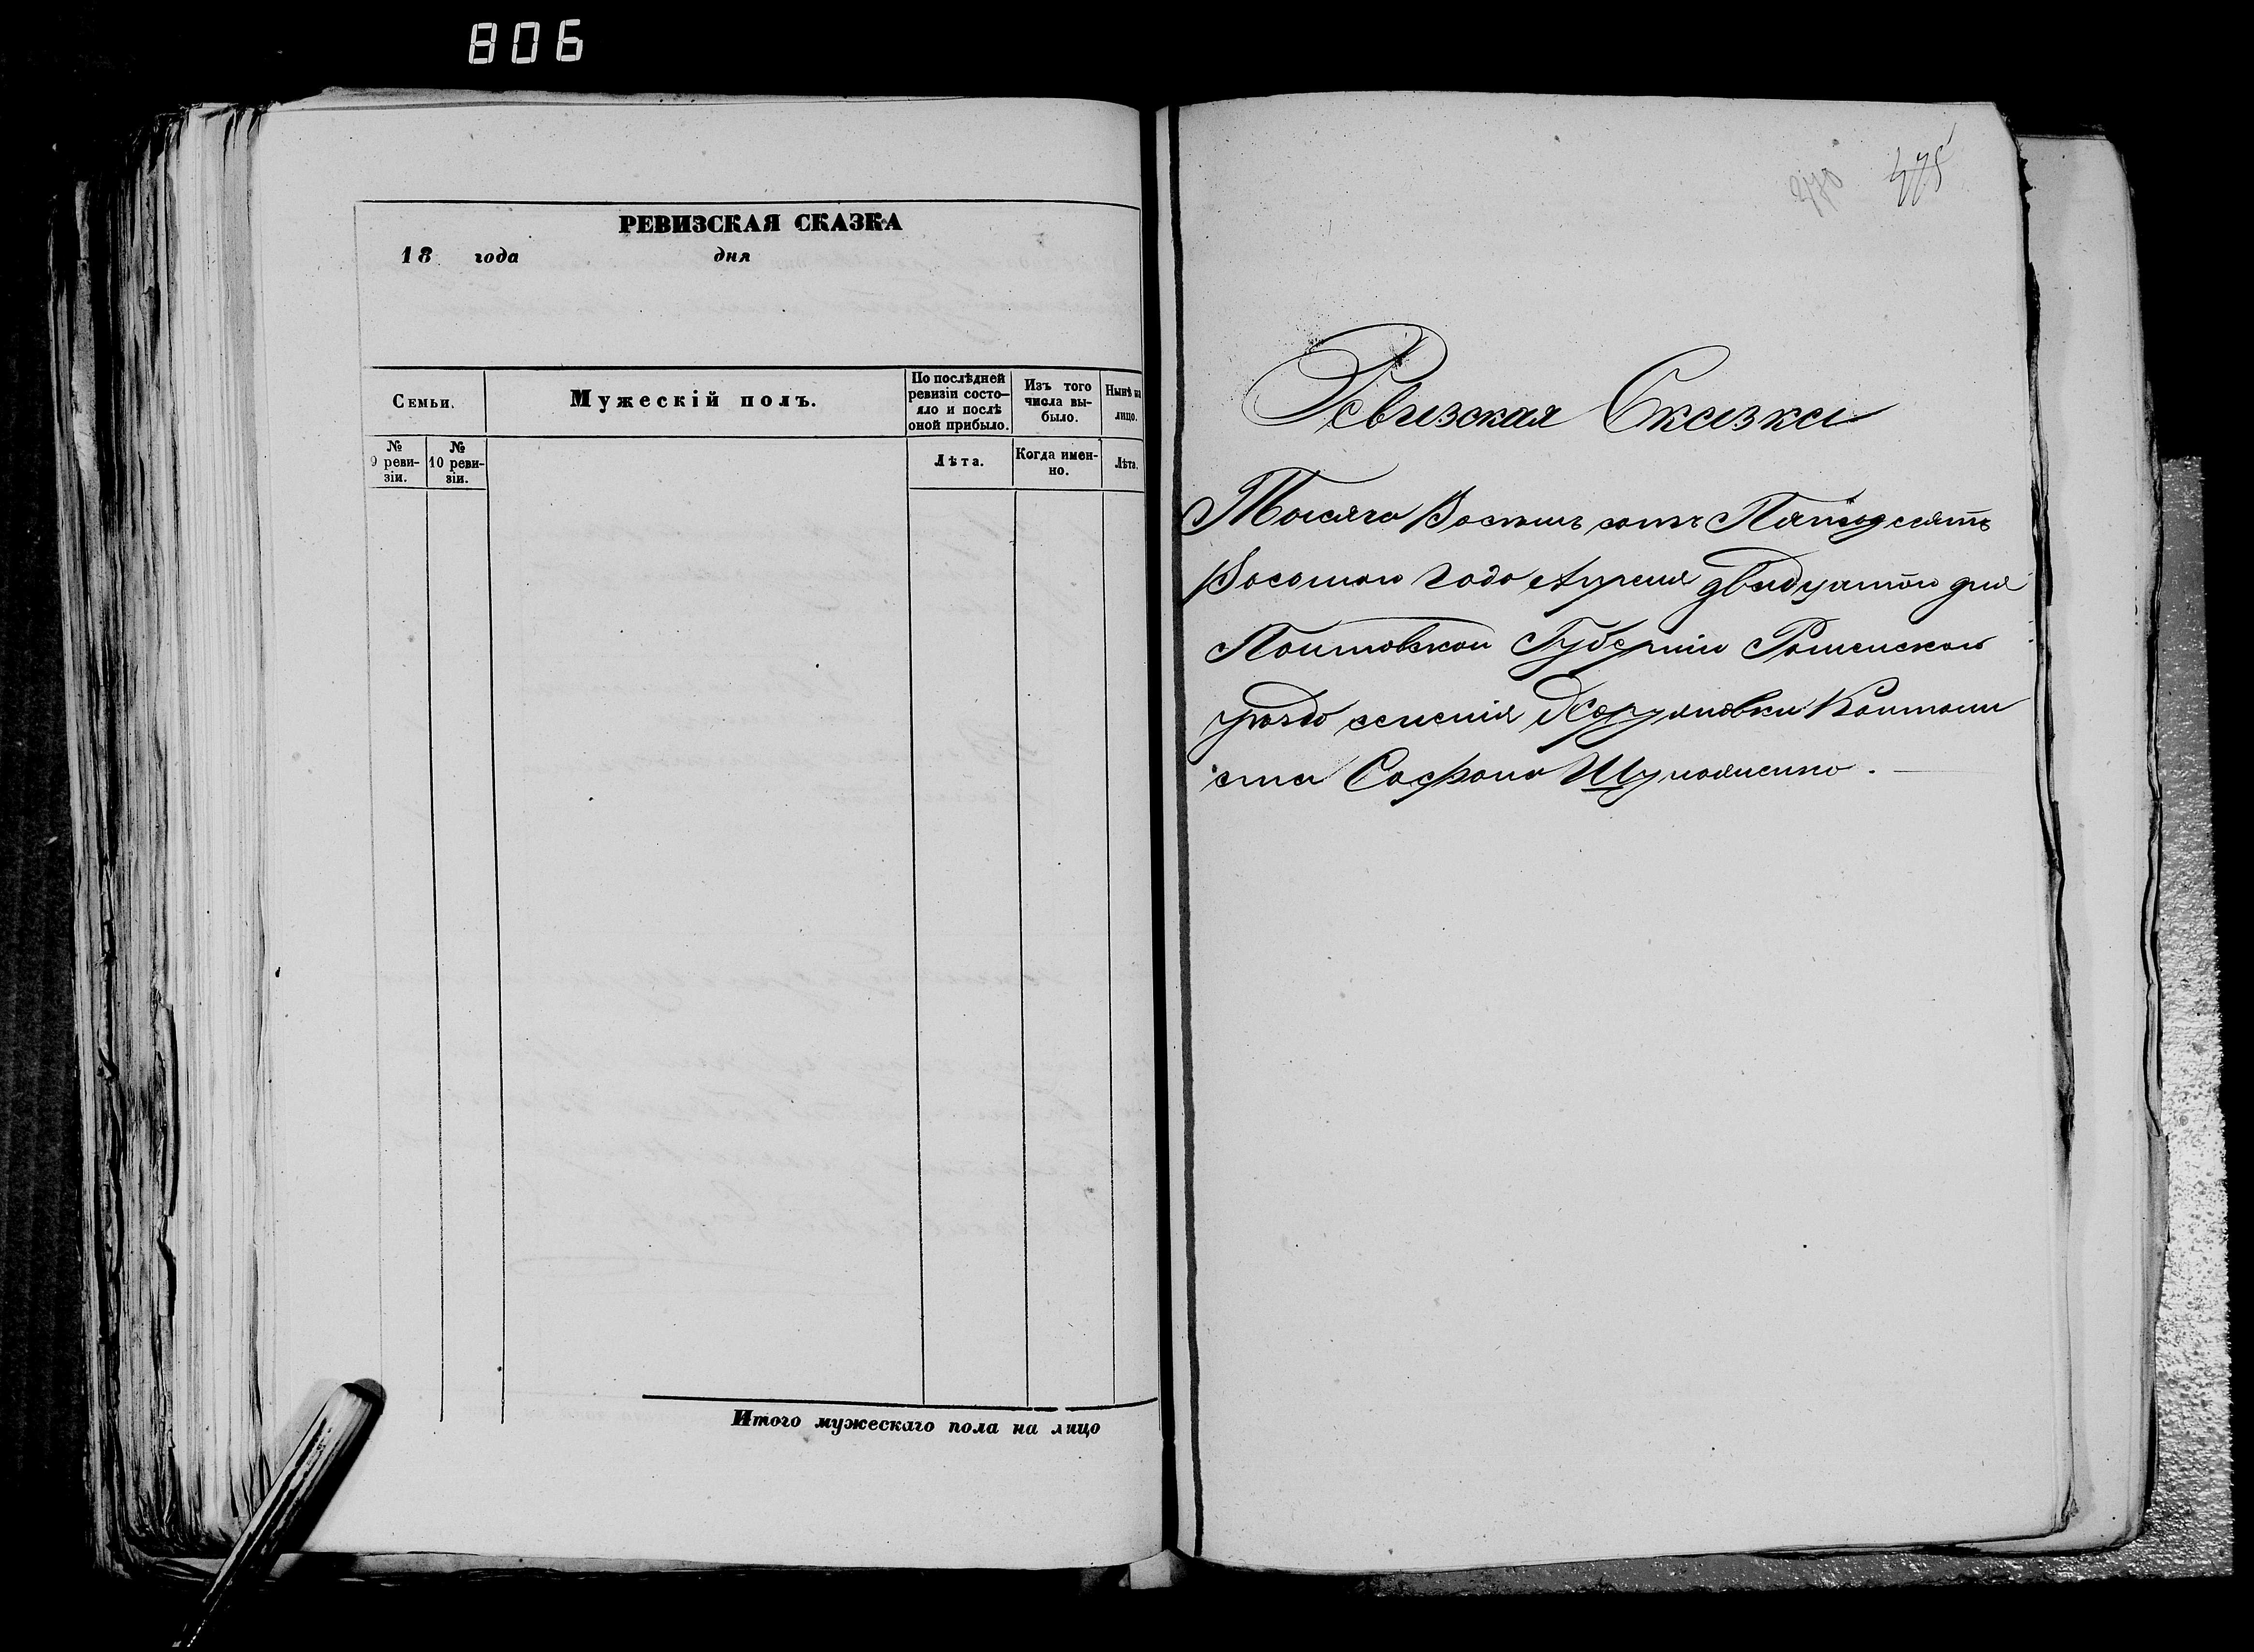 806
РЕВИЗСКАЯ СКАЗКА
18 года дня
Семьи.
Мужескій полъ.
По послѣдней ревизіи состо-
яло и послѣ
оной прибыло.
Изъ того
числа вы-
было.
Нынѣ на
лицо.
№
9 реви-
зіи.
№
10 реви-
зіи.
Лѣта.
Когда имен-
но.
Лѣта.
Итого мужескаго пола на лицо
475
Ревизская Сказка
Тысяча Восемь сотъ Пятьдесятъ
Восьмого года Апреля двадцятого дня
Полтавской Губерніи Роменского
уезда селенія Кантони
ста Софрона